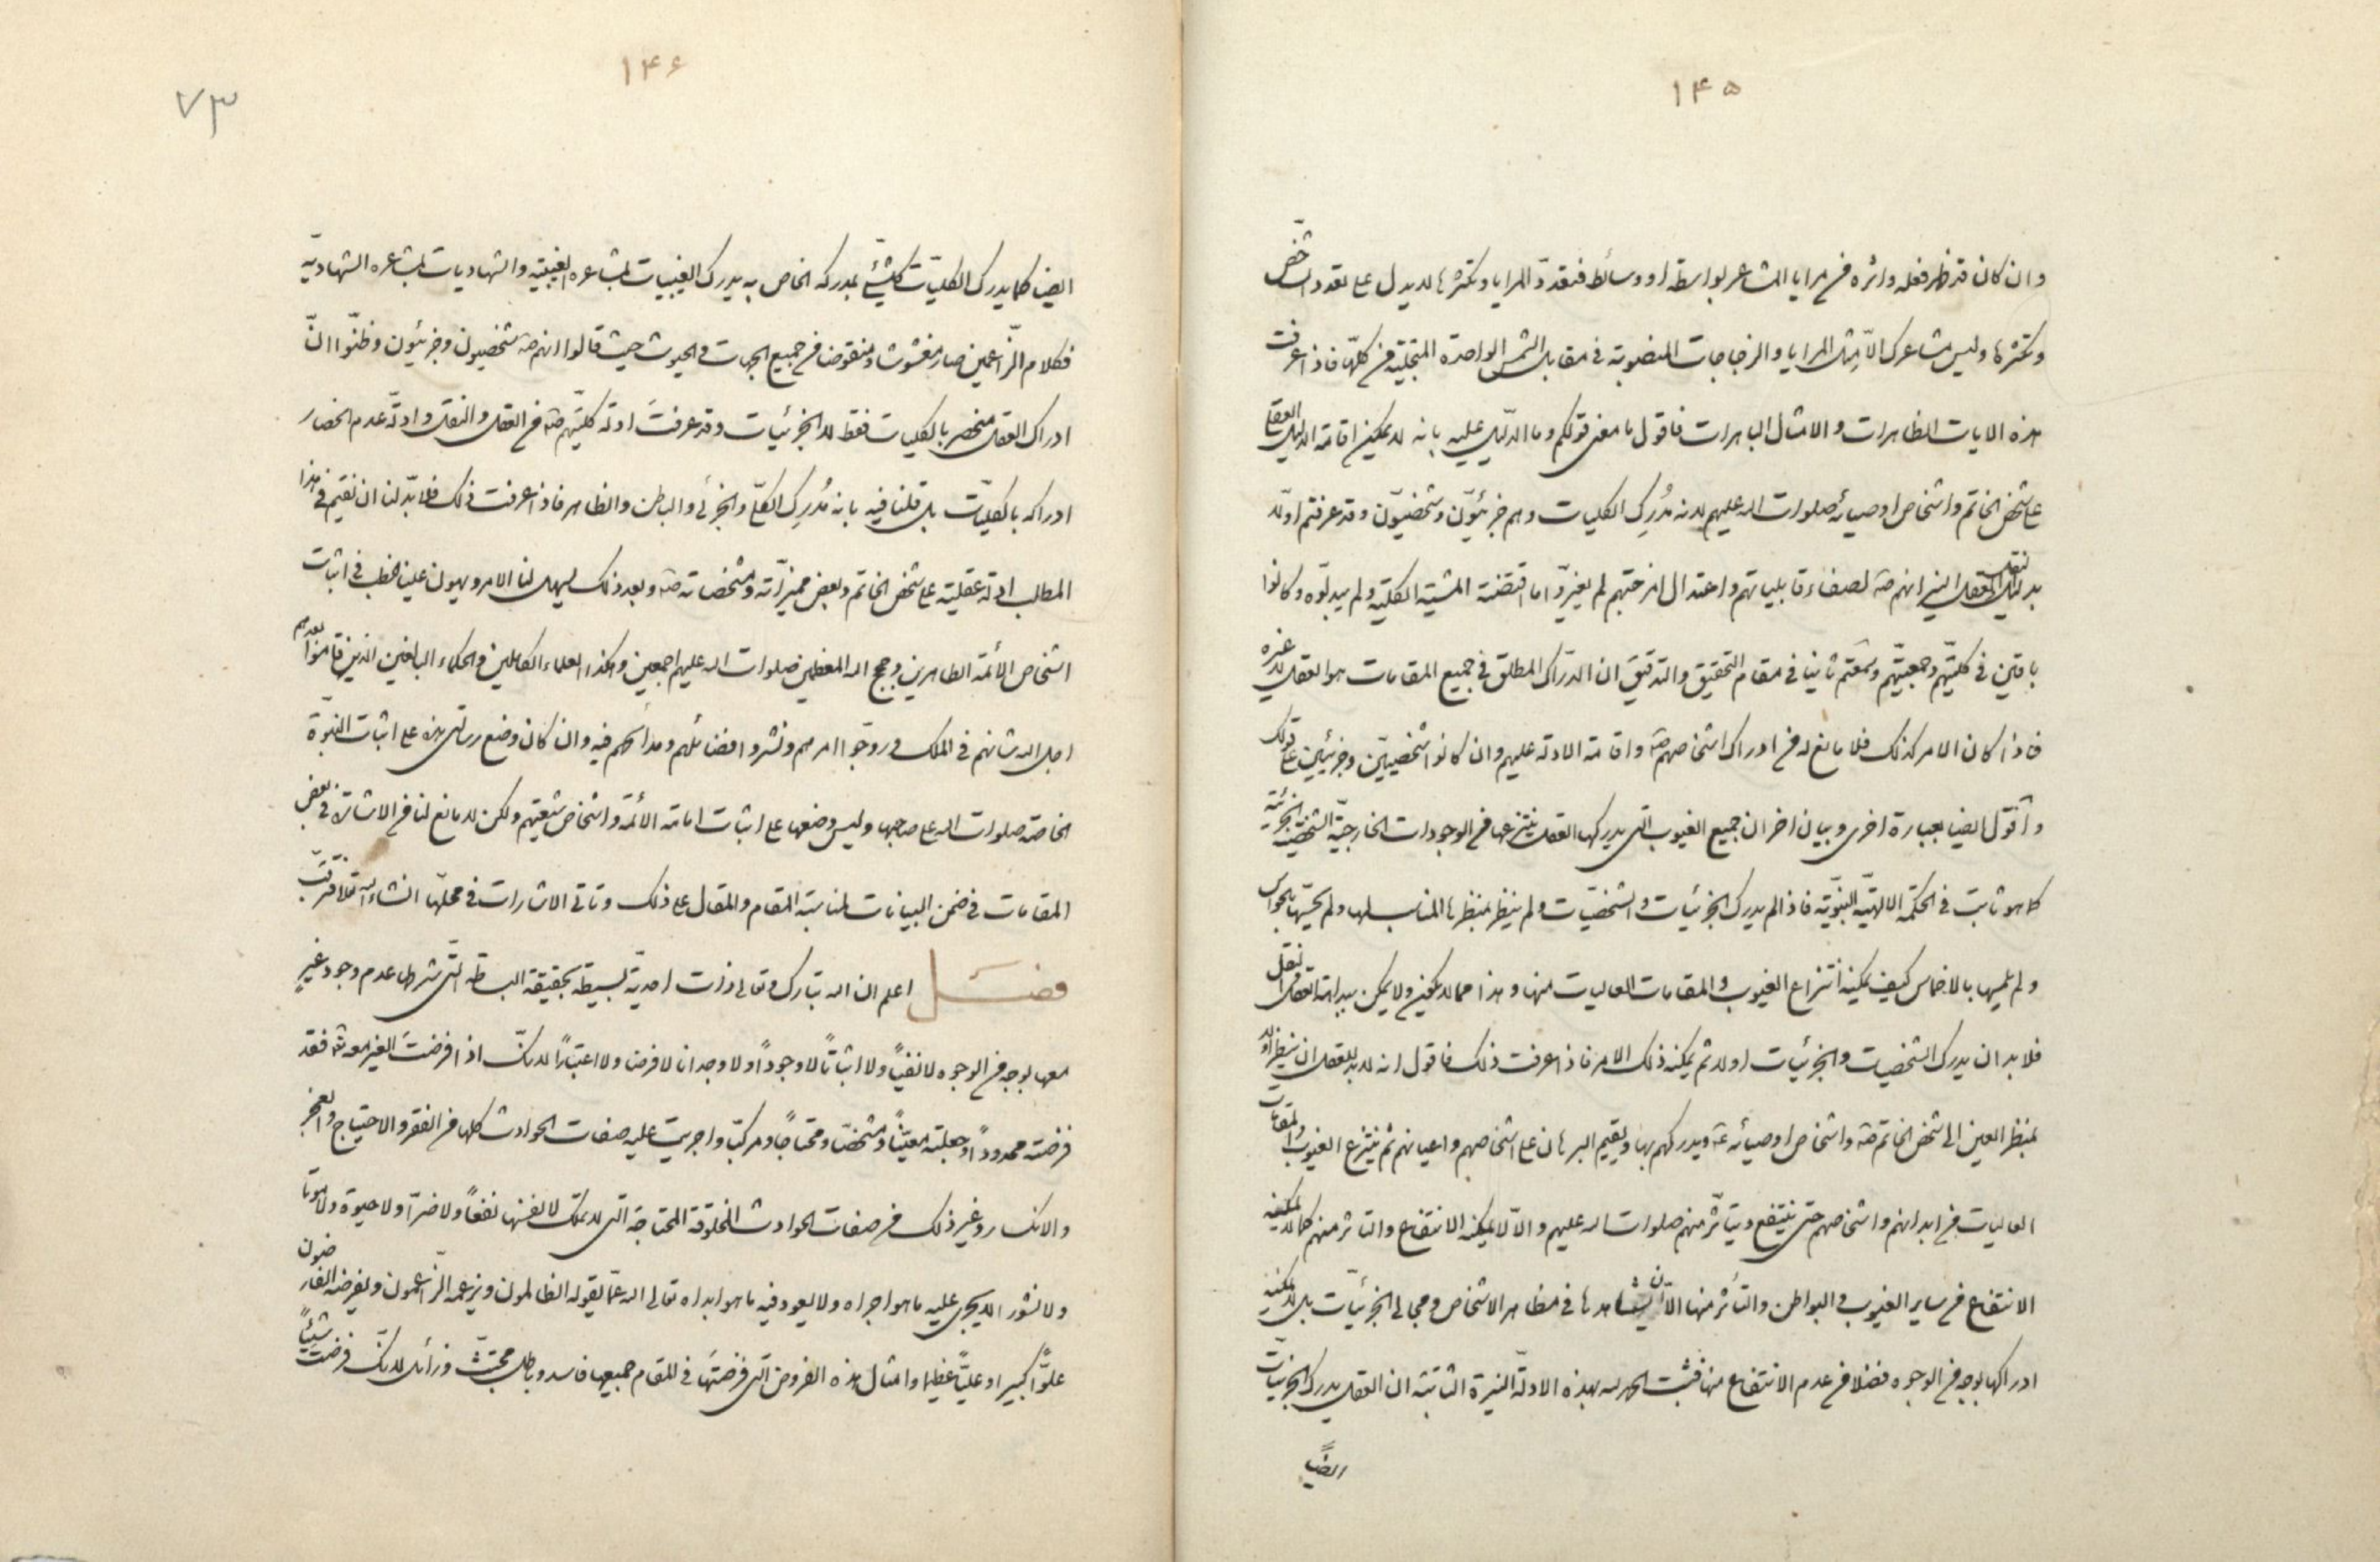 ١۴۵
وان كان قد ظهر فعله واثره فى مرايا المشاعر بواسطة او وسائط فتعدّد المرايا وتكثرها لا يدل على تعدد الشخص
وتكثرها وليس مشاعرك الّا مِثل المرايا والزجاجات المنصوبة فى مقابل الشمس الواحدة المتجلية فى كلّها فاذا عرفت
هذه الايات الظاهرات والامثال الباهرات فاقول ما معنى قولكم وما الدّليل عليه بانه لا يمكن اقامة الدليل العقلى
على شخص الخاتم واشخاص اوصيائه صلوات الله عليهم لانه مُدرِك الكليات وهم جزئيّون وشخصيّون وقد عرفتم اوّلا
بدليل العقل والنقل انهم ص لصفاء قابلياتهم واعتدال امزجتهم لم يغيرّوا ما اقتضته المشية الكلّية ولم يبدلوه وكانوا
باقين فى كليّتهم وجمعيّتهم وسمعتم ثانيا فى مقام التحقيق والتدقيق ان الدرّاك المطلق فى جميع المقامات هو العقل لا غيره
فاذا كان الامر كذلك فلا مانع له فى ادراك اشخاصهم ص واقامة الادلة عليهم وان كانوا شخصييّن وجزئيين على قولك
واقول ايضا بعبارة اخرى وبيان اخر ان جميع الغيوب التى يدركها العقل ينتزعها من الوجودات الخارجيّة الشخصية الجزئية
كما هو ثابت فى الحكمة الالهيّة النبويّة فاذا لم يدرك الجزئيات والشخصيّات ولم ينظر بمنظرها المناسب لها ولم يحسّها بالحواس
ولم يلمسها بالاخماس كيف يمكنه انتزاع الغيوب والمقامات العاليات منها وهذا مما لا يكون ولا يمكن ببداهة العقل والنقل
فلا بد ان يدرك الشخصيات والجزئيات اولا ثم يمكنه ذلك الامر فاذا عرفت ذلك فاقول انه لا بد للعقل ان ينظر اولا
بمنظر العين الى شخص الخاتم ص واشخاص اوصيائه ع ويدركهم بها ويقيم البرهان على اشخاصهم واعيانهم ثم ينتزع الغيوب والمقامات
العاليات من ابدانهم واشخاصهم حتى ينتفع ويتأثر منهم صلوات الله عليهم والا لا يمكنه الانتفاع والتاثر منهم كما لا يمكنه
الانتفاع من ساير الغيوب والبواطن والتأثر منها الّا ان يشاهدها فى مظاهر الاشخاص ومجالى الجزئيّات بل لا يمكنه
ادراكها بوجه من الوجوه فضلا من عدم الانتفاع منها فثبت الحمد لله بهذه الادلّة النيرة الثابتة ان العقل يدرك الجزئيات
ايضاً
١۴۶
٧٣
ايضا كما يدرك الكليّات كل شئ بمدركه الخاص به يدرك الغيبيات بمشاعره الغيبيّة والشهاديات بمشاعره الشهاديّة
فكلام الزّاعمين صار مغشوشا ومنقوضا فى جميع الجهات والحيوث حيث قالوا انهم ص شخصيون وجزئيون وظنّوا انّ
ادراك العقل منحصر بالكليات فقط لا الجزئيات وقد عرفتَ ادلة كليّتهم ص من العقل والنقل وادلّة عدم انحصار
ادراكه بالكليّات بل قلنا فيه بانه مُدرِك الكلّى والجزئى والباطن والظاهر فاذا عرفت ذلك فلا بدّ لنا ان نقيم فى هذا
المطلب ادلة عقلية على شخص الخاتم وبعض مميزاته ومشخصاته ص وبعد ذلك يسهل لنا الامر ويهون علينا الخطب فى اثبات
اشخاص الأئمة الطاهرين وحجج الله المعظمين صلوات الله عليهم اجمعين وهكذا العلماء الكاملين والحكماء البالغين الذين قاموا بعدهم
اجل الله شانهم فى الملك وروّجوا امرهم ونشروا فضائلهم ومدائحهم فيه وان كان وضع رسالتى هذه على اثبات النبوّة
الخاصة صلوات الله على صاحبها وليس وضعها على اثبات امامة الأئمة واشخاص شيعتهم ولكن لا مانع لنا من الاشارة فى بعض
المقامات فى ضمن البيانات لمناسبة المقام والمقال على ذلك وتاتى الاشارات فى محلّها انشاء الله تعالى فترقّب
فصل اعلم ان الله تبارك وتعالى ذات احديّة بسيطة بحقيقة البساطة التى شرطها عدم وجود غيرٍ
معها بوجه من الوجوه لا نفياً ولا اثباتاً لا وجوداً ولا وجدانا لا فرضا ولا اعتباراً لانك اذا فرضتَ الغير معه فقد
فرضته محدوداً وجعلته معيّناً ومشخّصا ومحتاجاً ومركبّا واجريت عليه صفات الحوادث كلها من الفقر والاحتياج والعجز
والانكسار وغير ذلك من صفات الحوادث المخلوقة المحتاجة التى لا تملك لانفسها نفعاً ولا ضرّا ولا حيوة ولا موتا
ولا نشور الا يجرى عليه ما هو اجراه ولا يعود فيه ما هو ابداه تعالى الله عمّا يقوله الظالمون ويزعمه الزّاعمون ويفرضه الفارضون
علوّاً كبيرا وعليّاً عظيما وامثال هذه الفروض التى فرضتها فى المقام جميعها فاسد وباطل مجتثّ وزائل لانك فرضت شيئاً